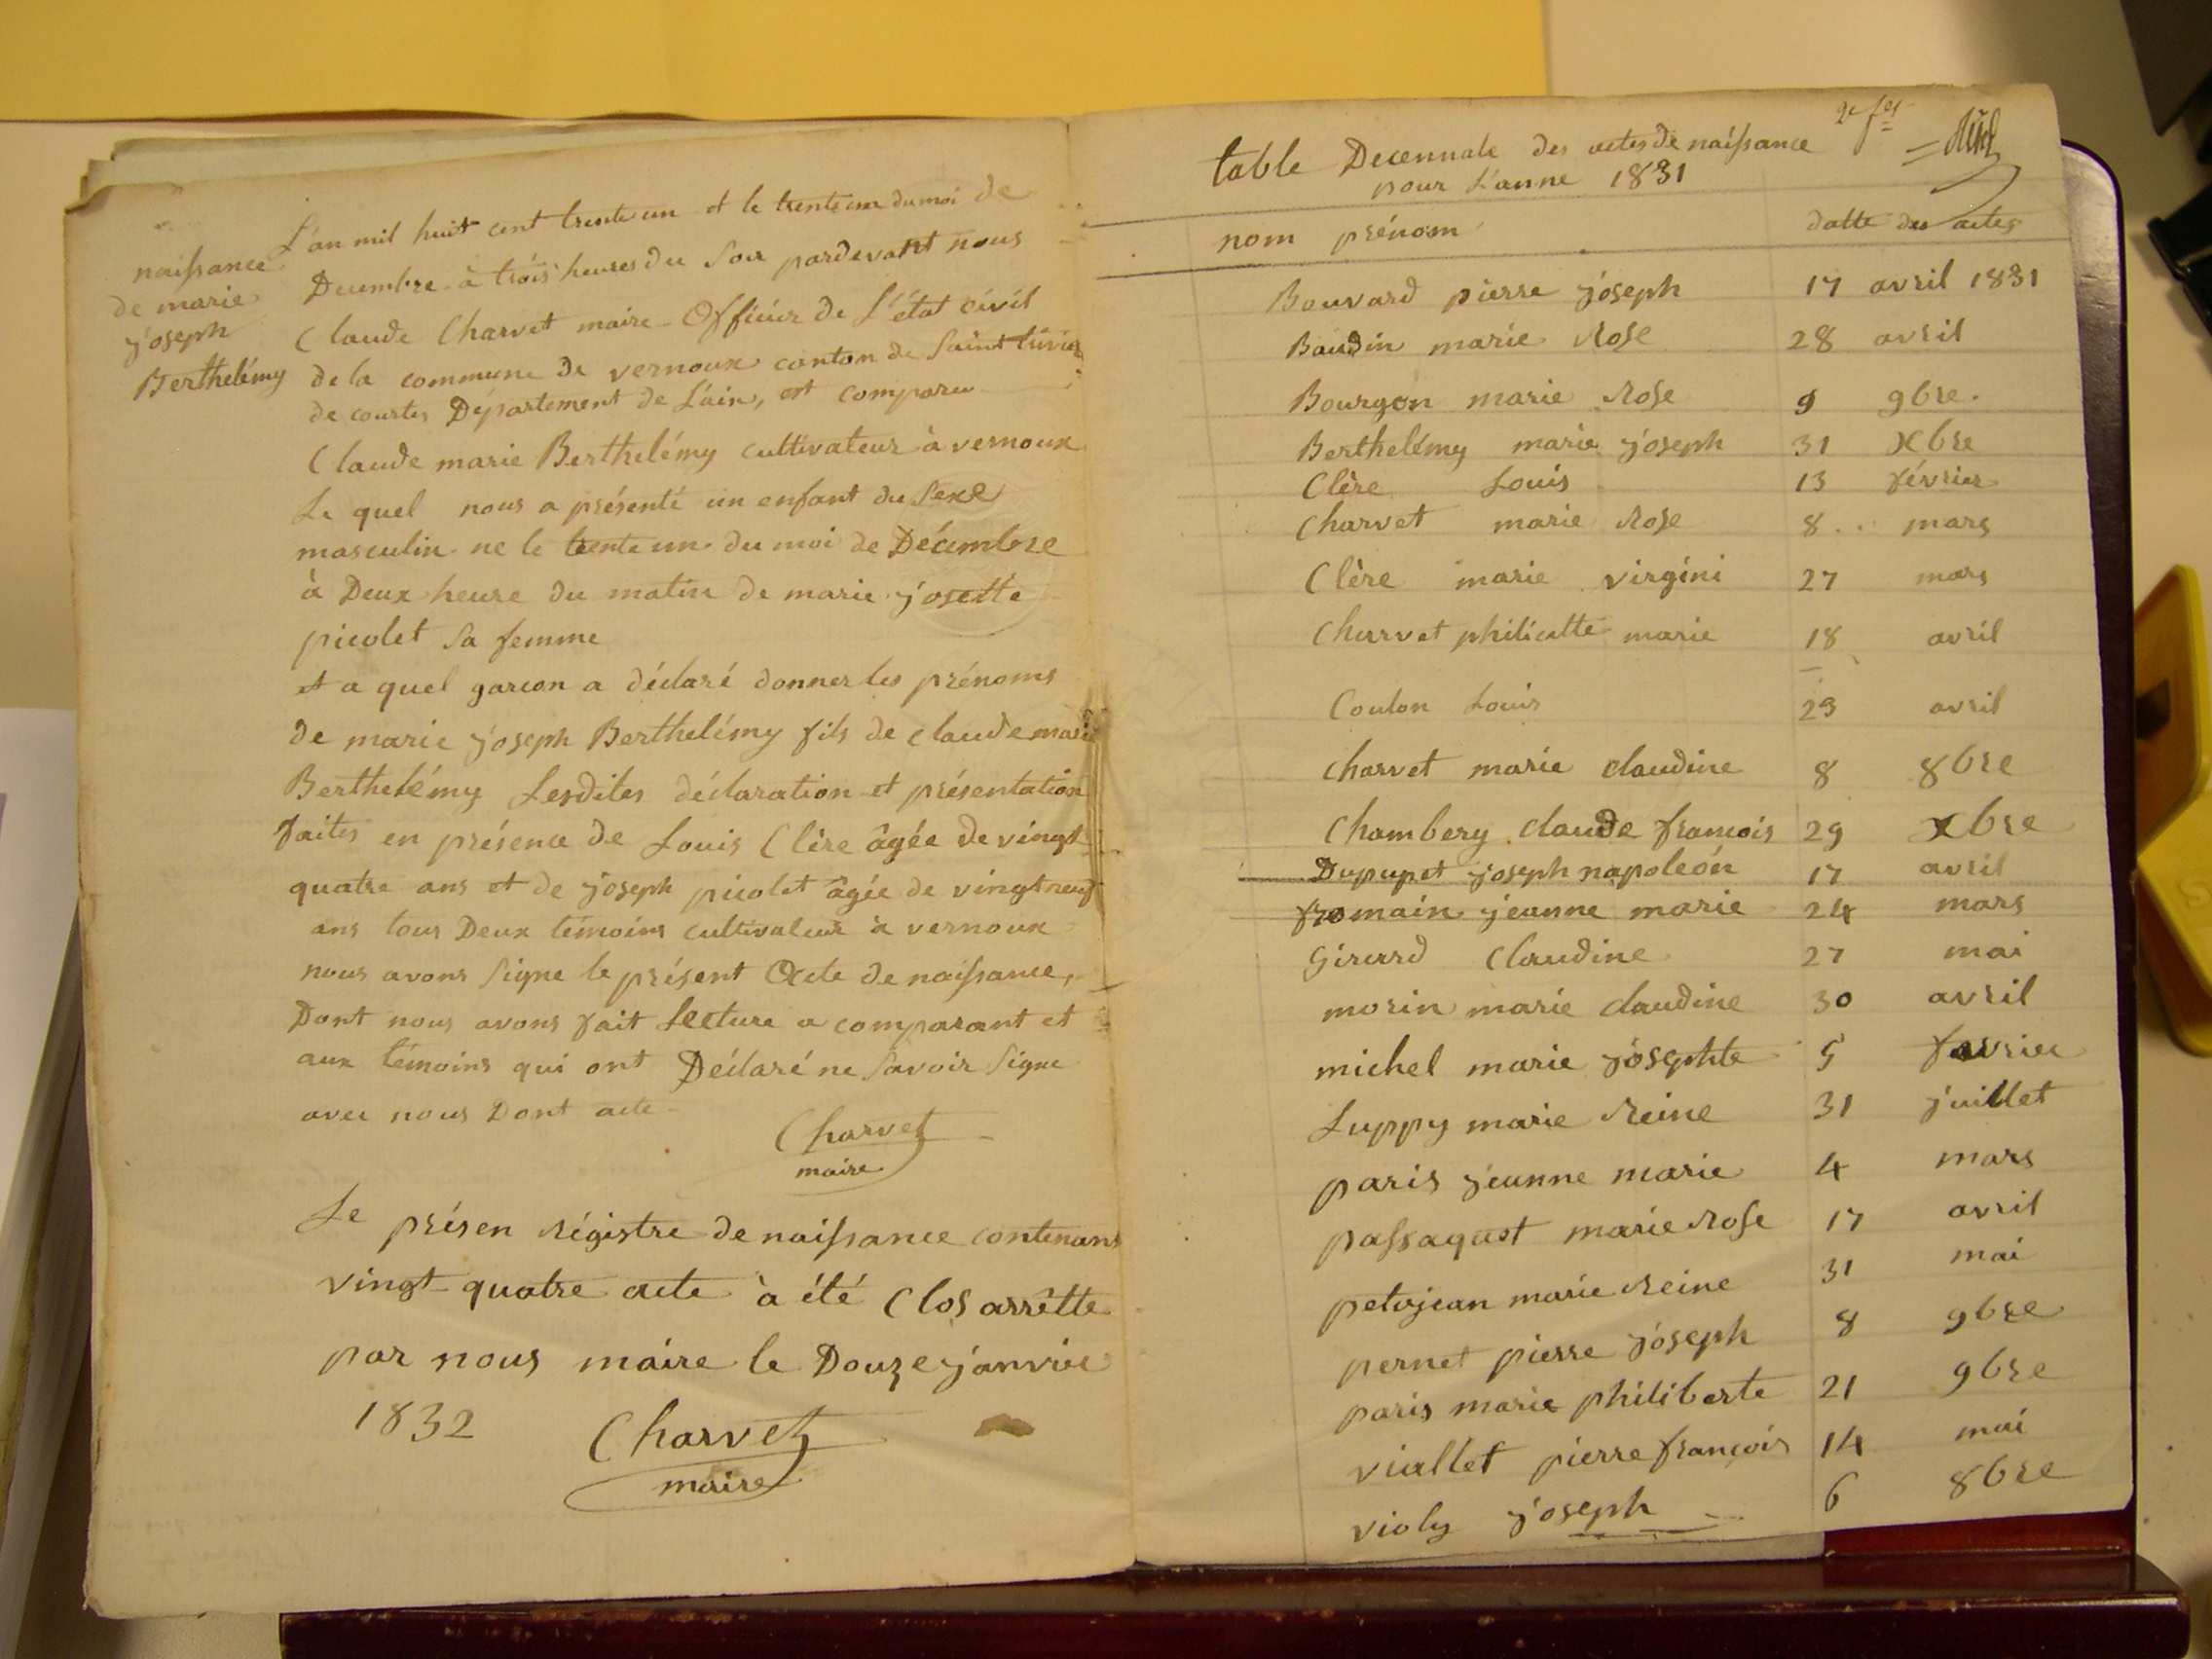 naissance
de marie
joseph
Berthelémy
L'an mil huit cent trente un et le trente un du moi de
Decembre à trois heures du Soir pardevant nous
Claude Charvet maire Officier de L'état civil
de la commune de vernoux canton de Saint trivier
de courtes Département de L'ain, est comparu
Claude marie Berthelémy cultivateur à vernoux
Le quel nous a présenté un enfant du Sexe
masculin ne le trente un du moi de Décembre
à Deux heure du matin de marie josette
picolet Sa femme
et a quel garcon a déclaré donner les prénoms
de marie joseph Berthelémy fils de claude marie
Berthelémy Lesdites déclaration et présentation
faites en présence de Louis Clère âgée de vingt
quatre ans et de joseph picolet âgée de vingt neuf
ans tous Deux témoins cultivateur à vernoux
nous avons Signe le présent Acte de naissance,
Dont nous avons fait Lecture a comparant et
aux témoins qui ont Déclaré ne Savoir Signe
avec nous Dont acte
Charvet
maire
Le présen régistre de naissance contenans
vingt-quatre acte à été Clos arrêtte
par nous maire le Douze janvier
1832
Charvet
maire
table Decennale des actes de naissance
pour L'anne 1831
nom prénom datte des actes
Bouvard pierre joseph 17 avril 1831
Baudin marie Rose 28 avril
Bourgon marie Rose 9 9bre.
Berthelémy marie joseph 31 Xbre
Clère Louis 13 février
Charvet marie Rose 8 mars
Clère marie virgini 27 mars
Charvet philicatte marie 18 avril
Coulon Louis 29 avril
Charvet marie claudine 8 8bre
Chambery claude francois 29 xbre
Dupupet joseph napoleón 17 avril
fromain jeanne marie 24 mars
Girard Claudine 27 mai
morin marie claudine 30 avril
michel marie josephte 5 favrier
Luppy marie Reine 31 juillet
paris jeanne marie 4 mars
passaquet marie Rose 17 avril
petijean marie Reine 31 mai
pernet pierre joseph 8 9bre
paris marie philiberte 21 9bre
viallet pierre françois 14 mai
violy joseph 6 8bre